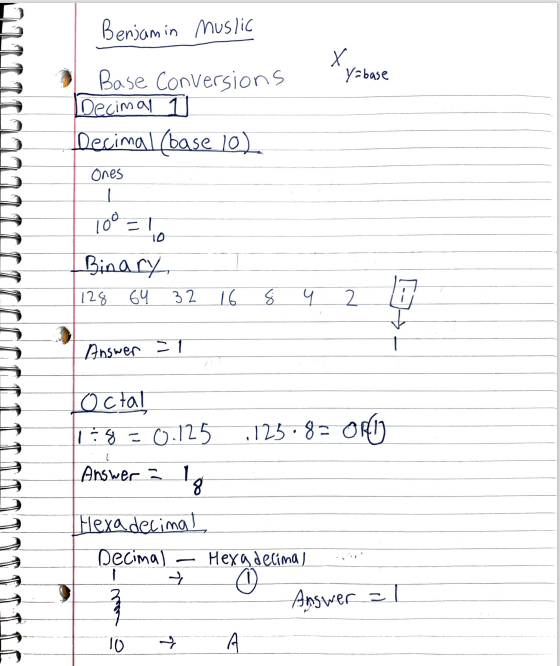 Benjamin Muslic
X
Y=base
Base Conversions
Decimal 1
Decimal (base 10)
Ones
1
10⁰ = 1₁₀
Binary
128 64 32 16 8 4 2 1
1
Answer = 1
Octal
1 ÷ 8 = 0.125 .125 · 8 = 0R1
Answer = 1₈
Hexadecimal
Decimal — Hexadecimal
1 → 1
2
Answer = 1
10 → A